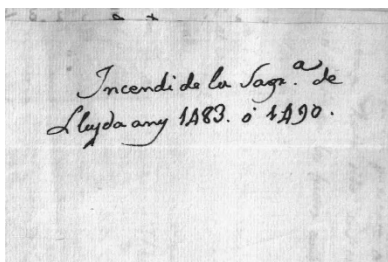 Incendi de la Sagr.ª de
Lleyda any 1483. ò 1490.